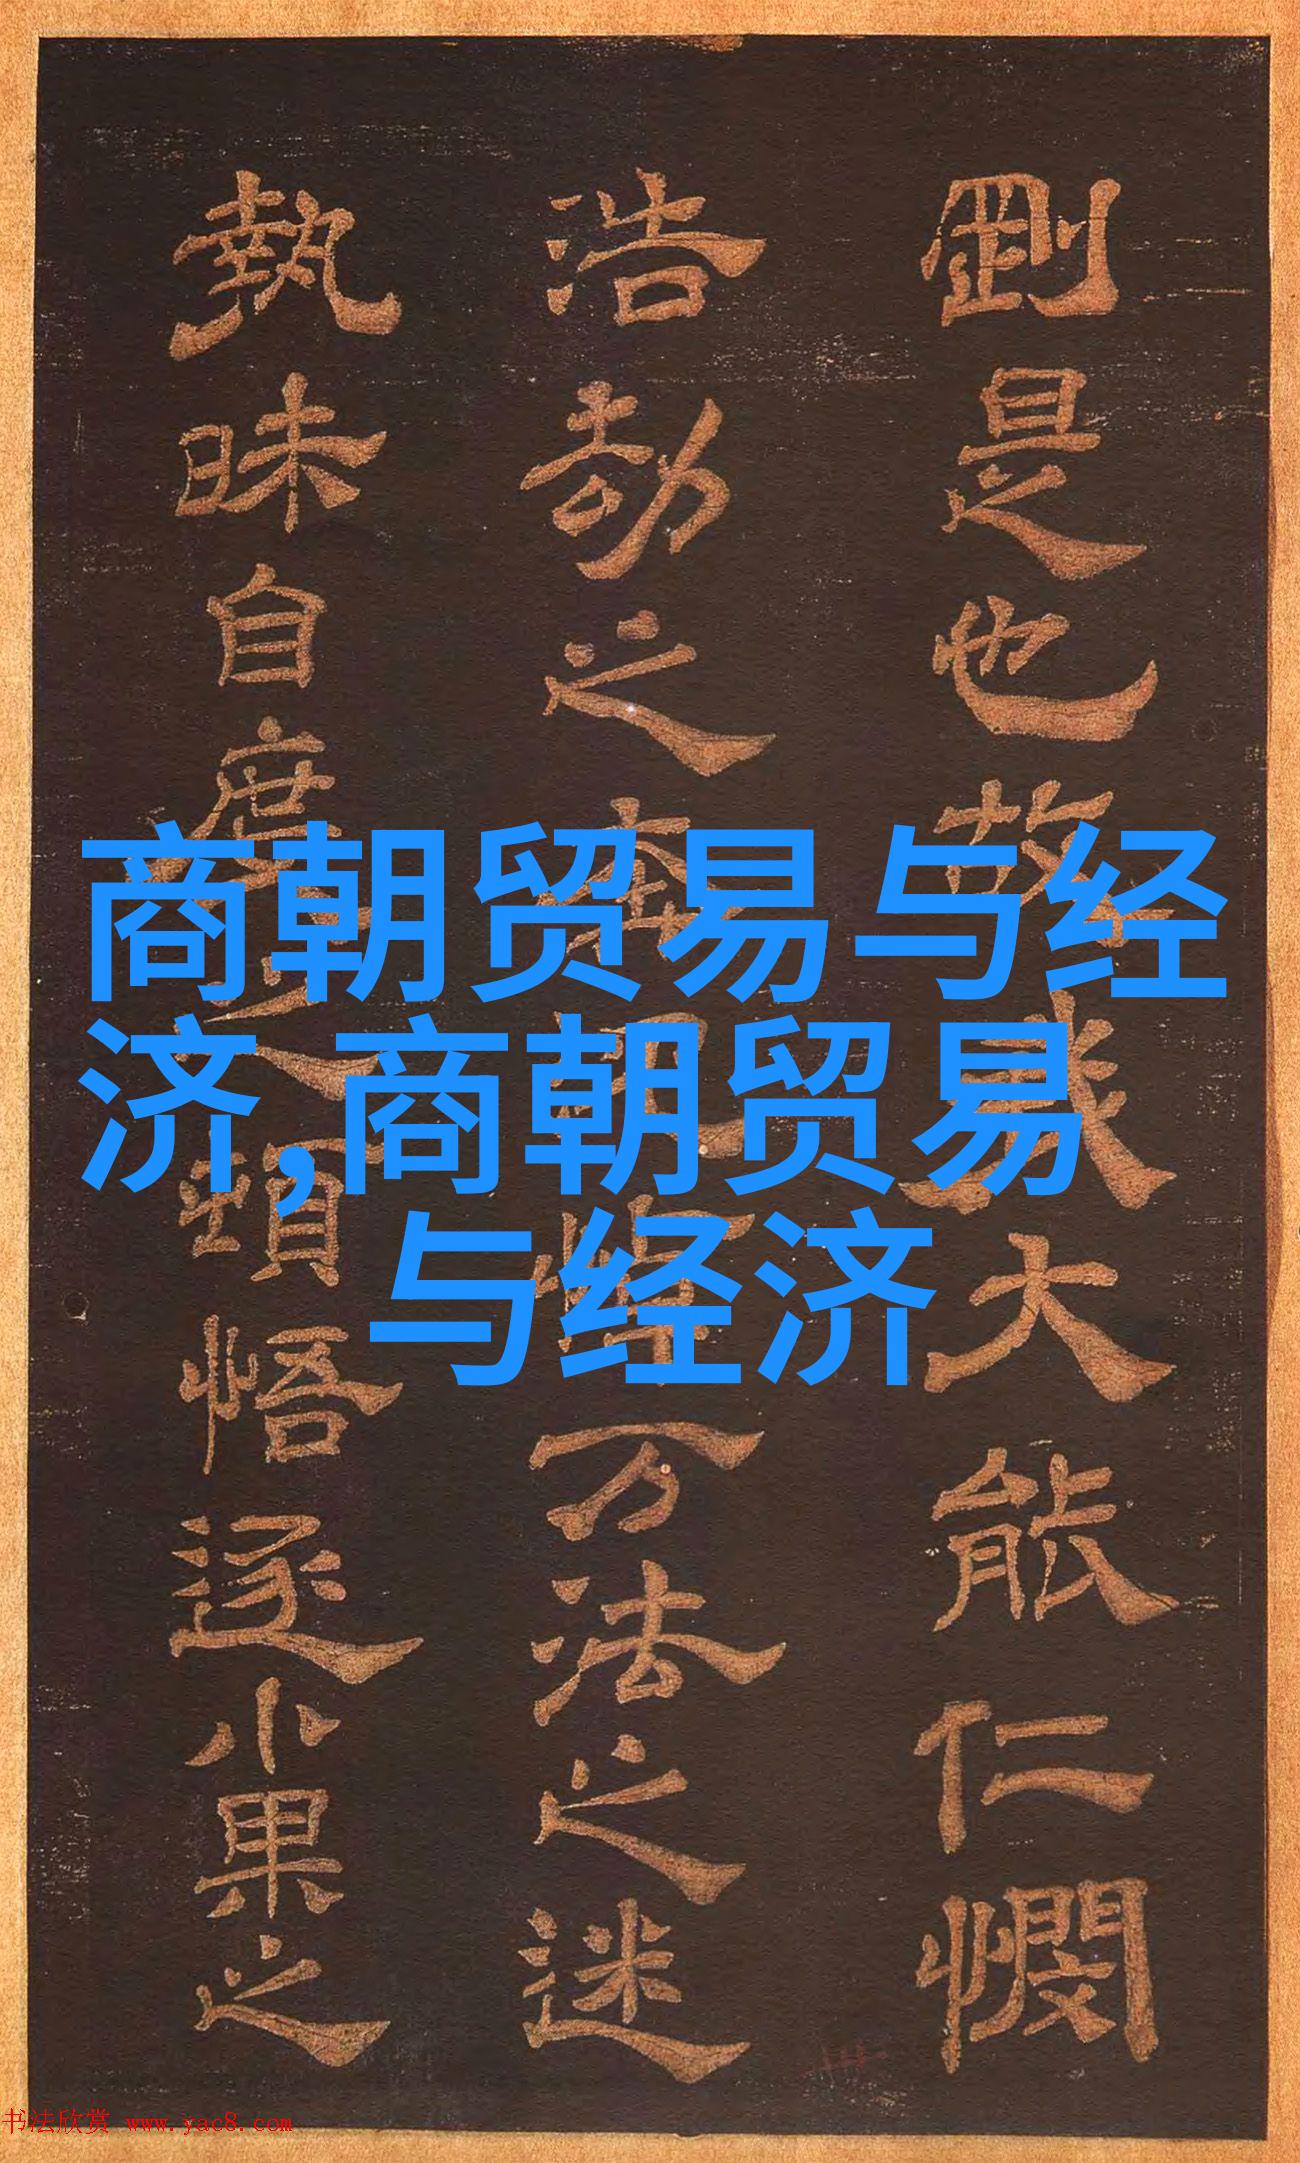 剛是也故我大能仁憫
浩劫之万法之迷
執昧自度之頓悟遂小果之
商朝贸易与经
济,商朝贸易
与经济
书法欣赏 www.yac8.com